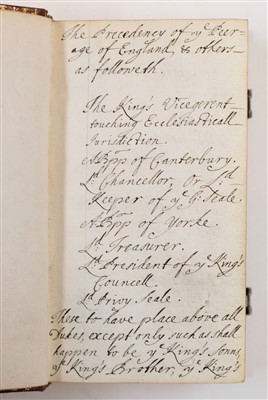 The Precedency of yᵉ Peer-
age of England, & others
as followeth.
The King's Vicegerent
touching Ecclesiasticall
Jurisdiction.
ABpp of Canterbury.
Lᵈ Chancellor, or Lᵈ
Keeper of yᵉ G. Seale
ABpp of Yorke.
Lᵈ Treasurer.
Lᵈ President of yᵉ King's
Councell.
Lᵈ Privy Seale.
These to have place above all
Dukes, except only such as shall
happen to be yᵉ King's Sonns,
yᵉ King's Brother, yᵉ King's